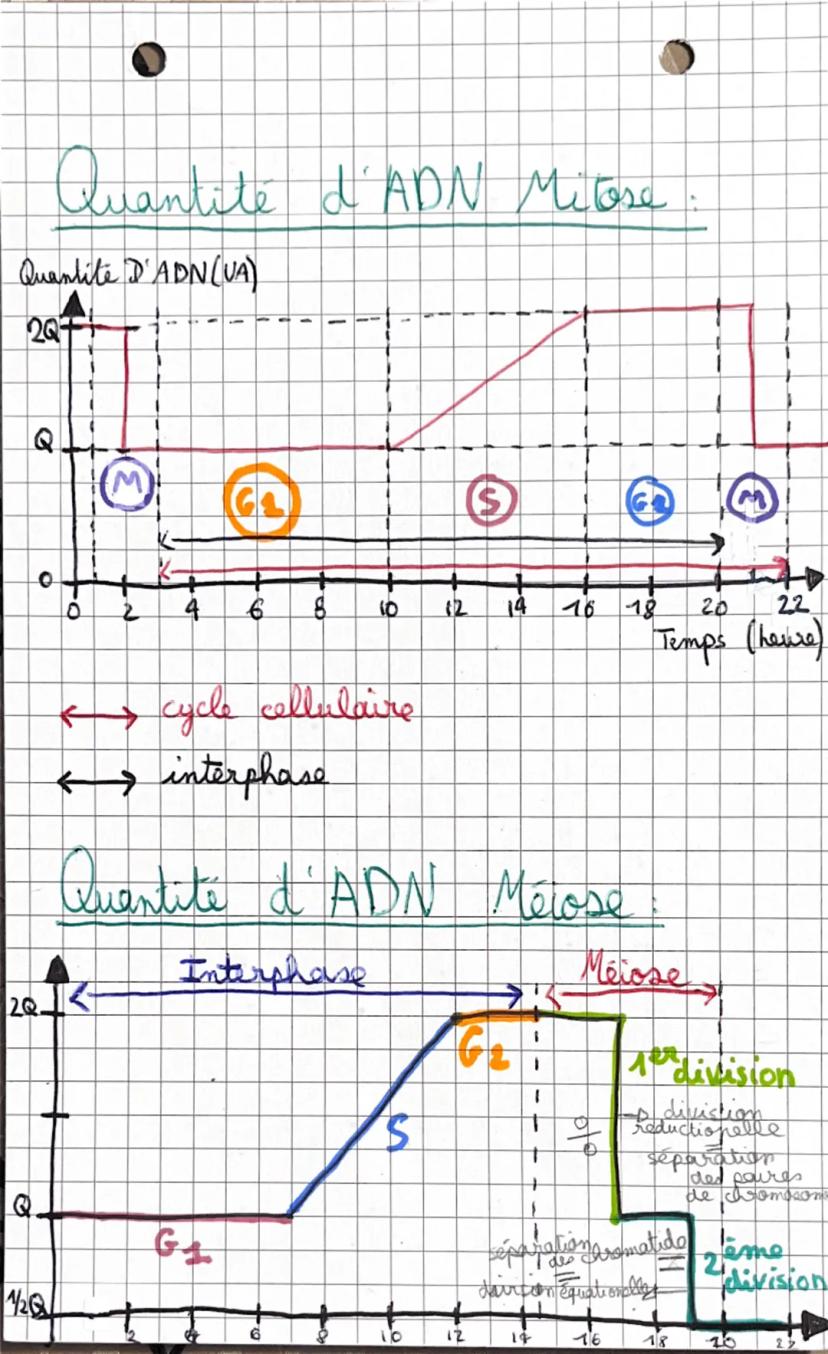 Quantité d'ADN Mitose :
Quantité D'ADN (UA)
2Q
Q
M G1 S G2 M
0
0 2 4 6 8 10 12 14 16 18 20 22
Temps (heure)
cycle cellulaire
interphase
Quantité d'ADN Méiose :
Interphase Méiose
2Q
G2
1er division
division
réductionelle
=
séparation
des paires
de chromosom
S
Q
G1
séparation
des chromatide
=
division équationelle
2ème
division
1/2Q
2 4 6 8 10 12 14 16 18 20 22